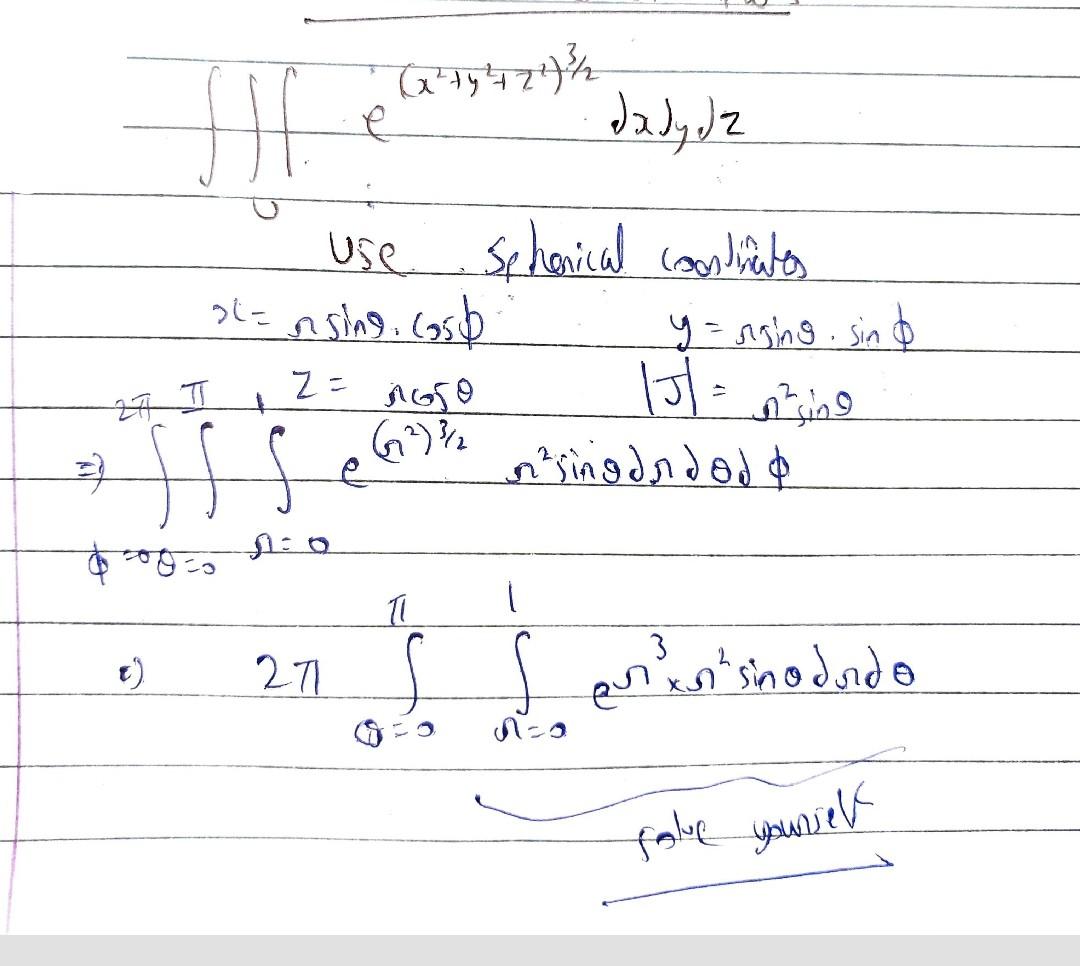 ∫∫∫ e^(x²+y²+z²)^3/2 dxdydz
U
Use spherical coordinates
x = r sinθ. cosϕ y = r sinθ. sin ϕ
z = r cosθ |J| = r² sinθ
⇒ ∫_{ϕ=0}^{2π} ∫_{θ=0}^{π} ∫_{r=0}^{1} e^(r²)^3/2 r² sinθ dr dθ dϕ
⇒ 2π ∫_{θ=0}^{π} ∫_{r=0}^{1} e^r³ × r² sinθ dr dθ
solve yourself